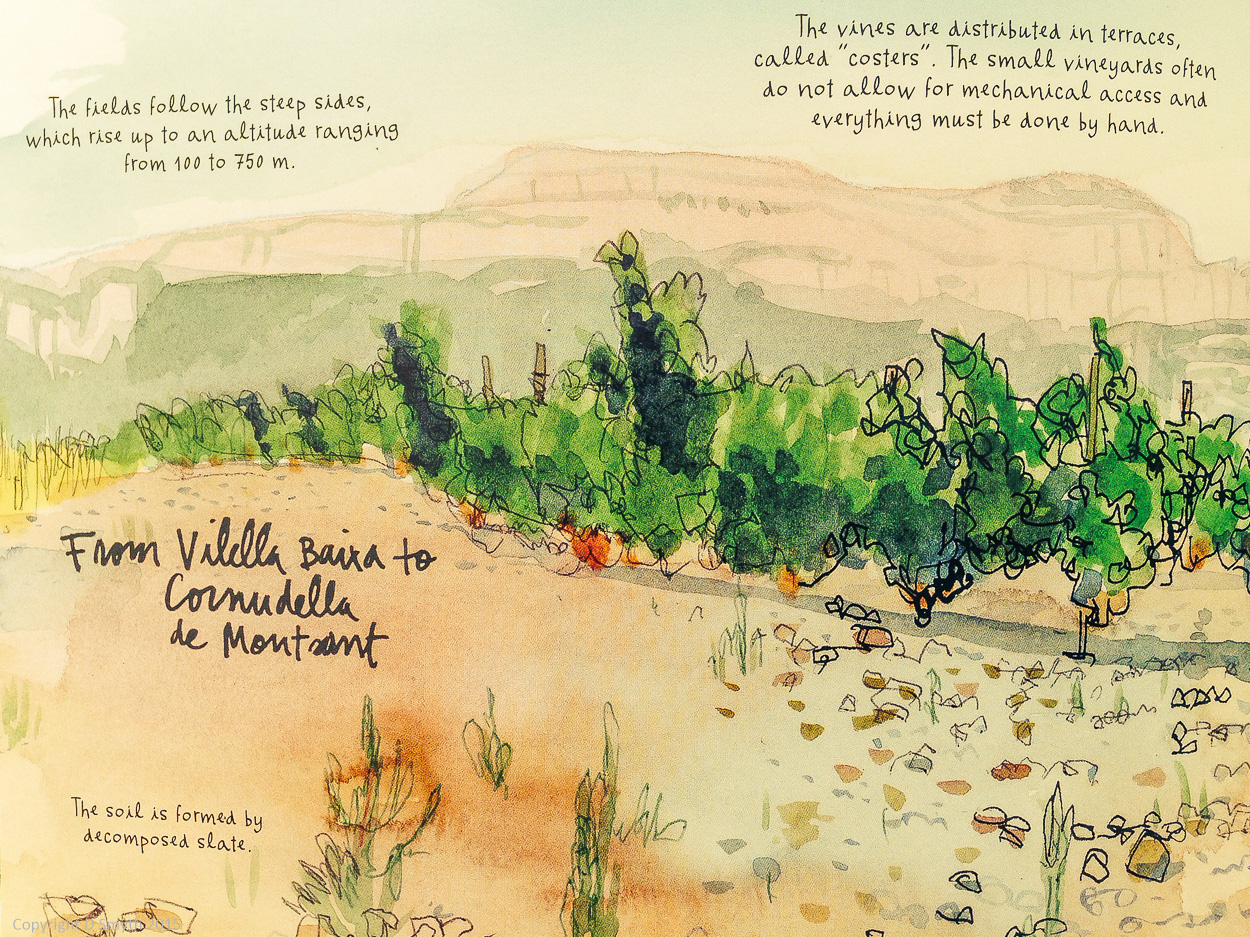 The vines are distributed in terraces,
called "costers". The small vineyards often
do not allow for mechanical access and
everything must be done by hand.
The fields follow the steep sides,
which rise up to an altitude ranging
from 100 to 750 m.
From Vilella Baixa to
Cornudella
de Montsant
The soil is formed by
decomposed slate.
Copyright D Smith 2015